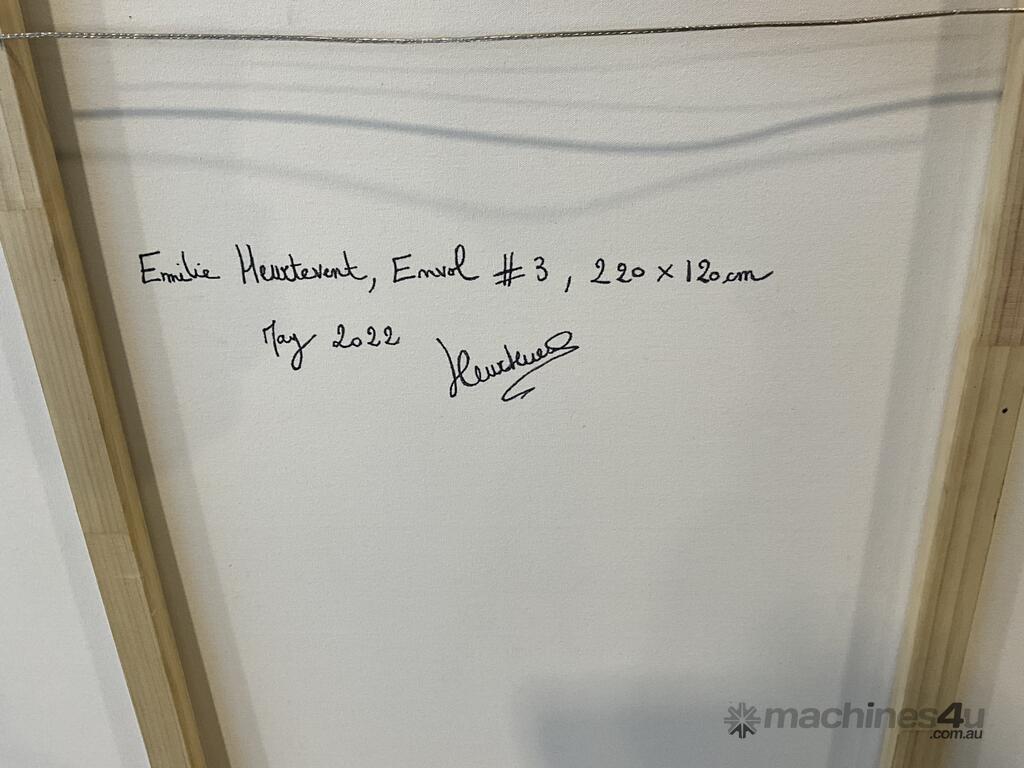 Emilie Heurtevent, Envol # 3, 220 x 120 cm
May 2022
Heurtevent
machines4u
.com.au